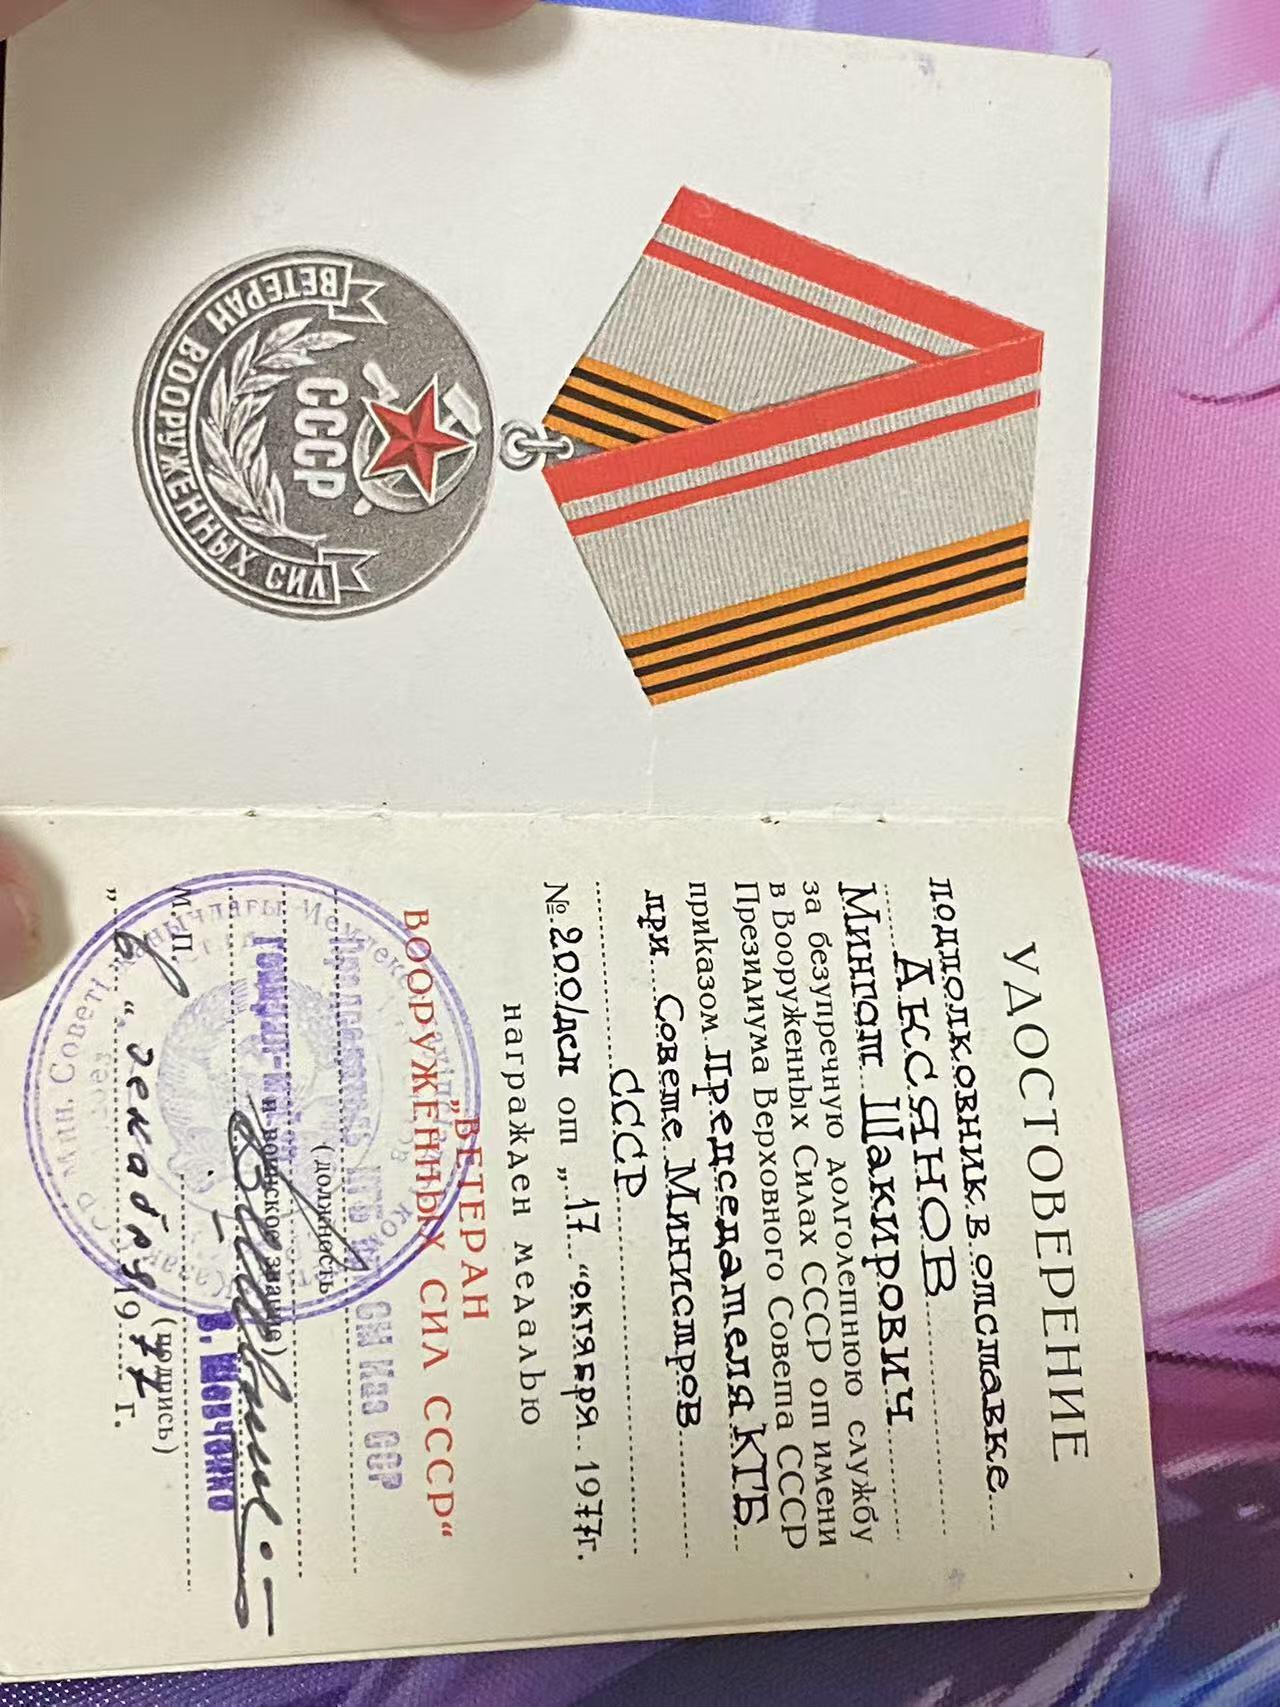 ВЕТЕРАН ВООРУЖЕННЫХ СИЛ
СССР
УДОСТОВЕРЕНИЕ
подполковник в отставке
АКСЯНОВ
Мингал Шакирович
за безупречную долголетнюю службу
в Вооруженных Силах СССР от имени
Президиума Верховного Совета СССР
приказом Председателя КГБ
при Совете Министров
СССР
№ 200/дсп от „ 17 “ октября 1977 г.
награжден медалью
„ВЕТЕРАН
ВООРУЖЕННЫХ СИЛ СССР“
Председатель КГБ СМ СССР
(должность)
Генерал-
(воинское звание)
В. Шевченко
(подпись)
М.П.
„ 6 “ декабря 1977 г.